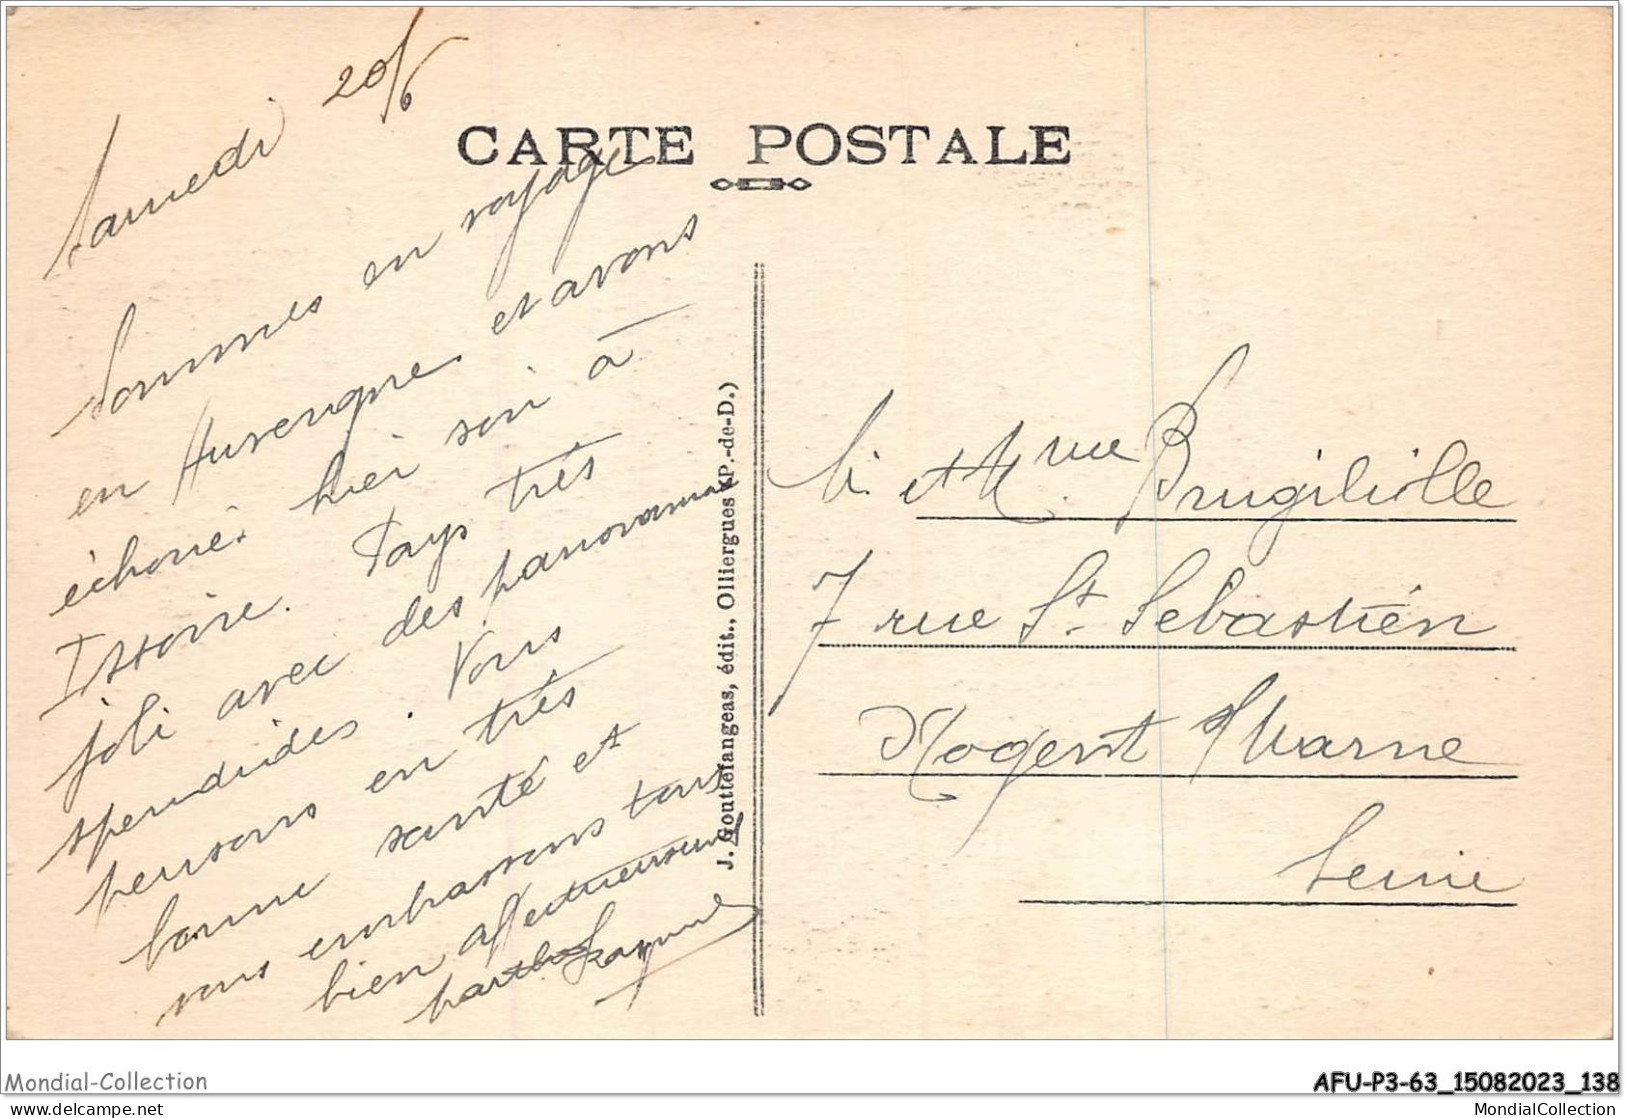 Samedi 20/6
CARTE POSTALE
Sommes en voyage
en Auvergne et avons
échoués hier soir à
Issoire. Pays très
joli avec des panoramas
spendides. Vous
pensons en très
bonne santé et
vous embrassons tous
bien affectueusement
J. Gouttefangeas, édit., Olliergues (P.-de-D.)
M. et Mme Brugiliolle
7 rue St. Sebastién
Nogent s/Marne
Seine
Mondial-Collection
AFU-P3-63_15082023_138
mc1.text
MondialCollection